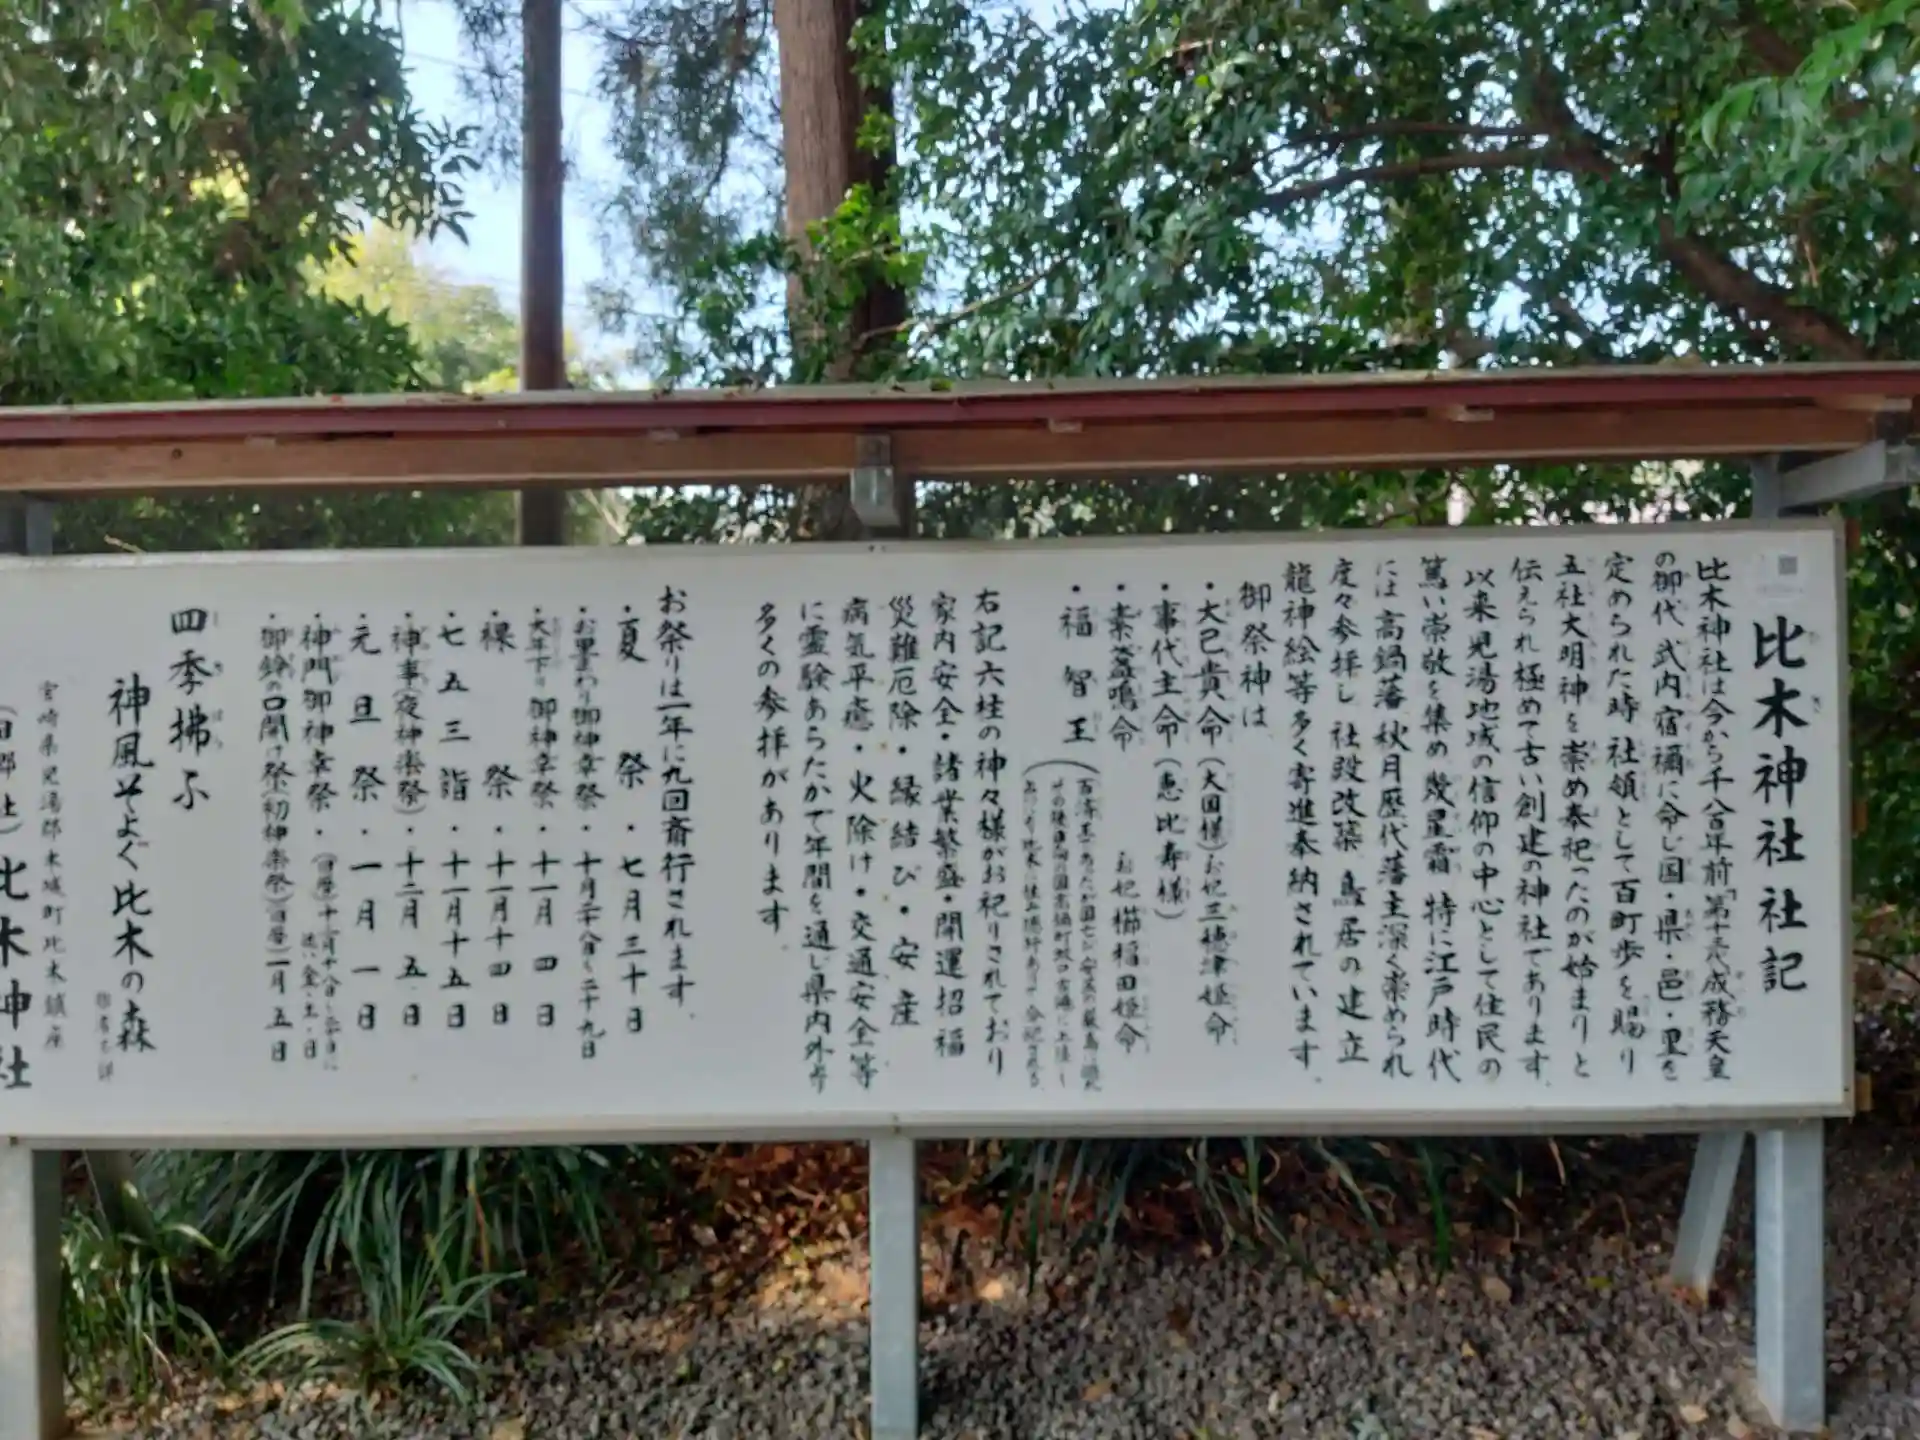 比木神社社記
比木神社は今から千八百年前「第十三代成務天皇
の御代 武内宿禰に命じ国・県・邑・里を
定められた時 社領として百町歩を賜り
五社大明神を崇め奉祀ったのが始まりと
伝えられ極めて古い創建の神社であります。
以来児湯地域の信仰の中心として住民の
篤い崇敬を集め 幾星霜 特に江戸時代
には 高鍋藩 秋月歴代藩主深く崇められ
度々参拝し 社殿改築 鳥居の建立
龍神絵等多く寄進奉納されています。
御祭神は
・大己貴命(大国様)お妃三穂津姫命
・事代主命(恵比寿様)
・素盞嗚命 お妃 櫛稲田姫命
・福智王
右記六柱の神々様がお祀りされており
家内安全・諸業繁盛・開運招福
災難厄除・縁結び・安産
病気平癒・火除け・交通安全等
に霊験あらたかで年間を通じ県内外から
多くの参拝があります。
お祭りは一年に九回斎行されます。
・夏祭・七月三十日
・お里まわり御神幸祭・十月二十八日〜二十九日
・大年下り御神幸祭・十一月四日
・裸祭・十一月十四日
・七五三詣・十一月十五日
・神事(夜神楽祭)・十二月五日
・元旦祭・一月一日
・神門御神幸祭・
・御鈴の口開け祭(初神楽祭)旧暦二月五日
四季拂ふ
神風そよぐ比木の森
宮崎県児湯郡木城町比木鎮座
(旧郷社)比木神社